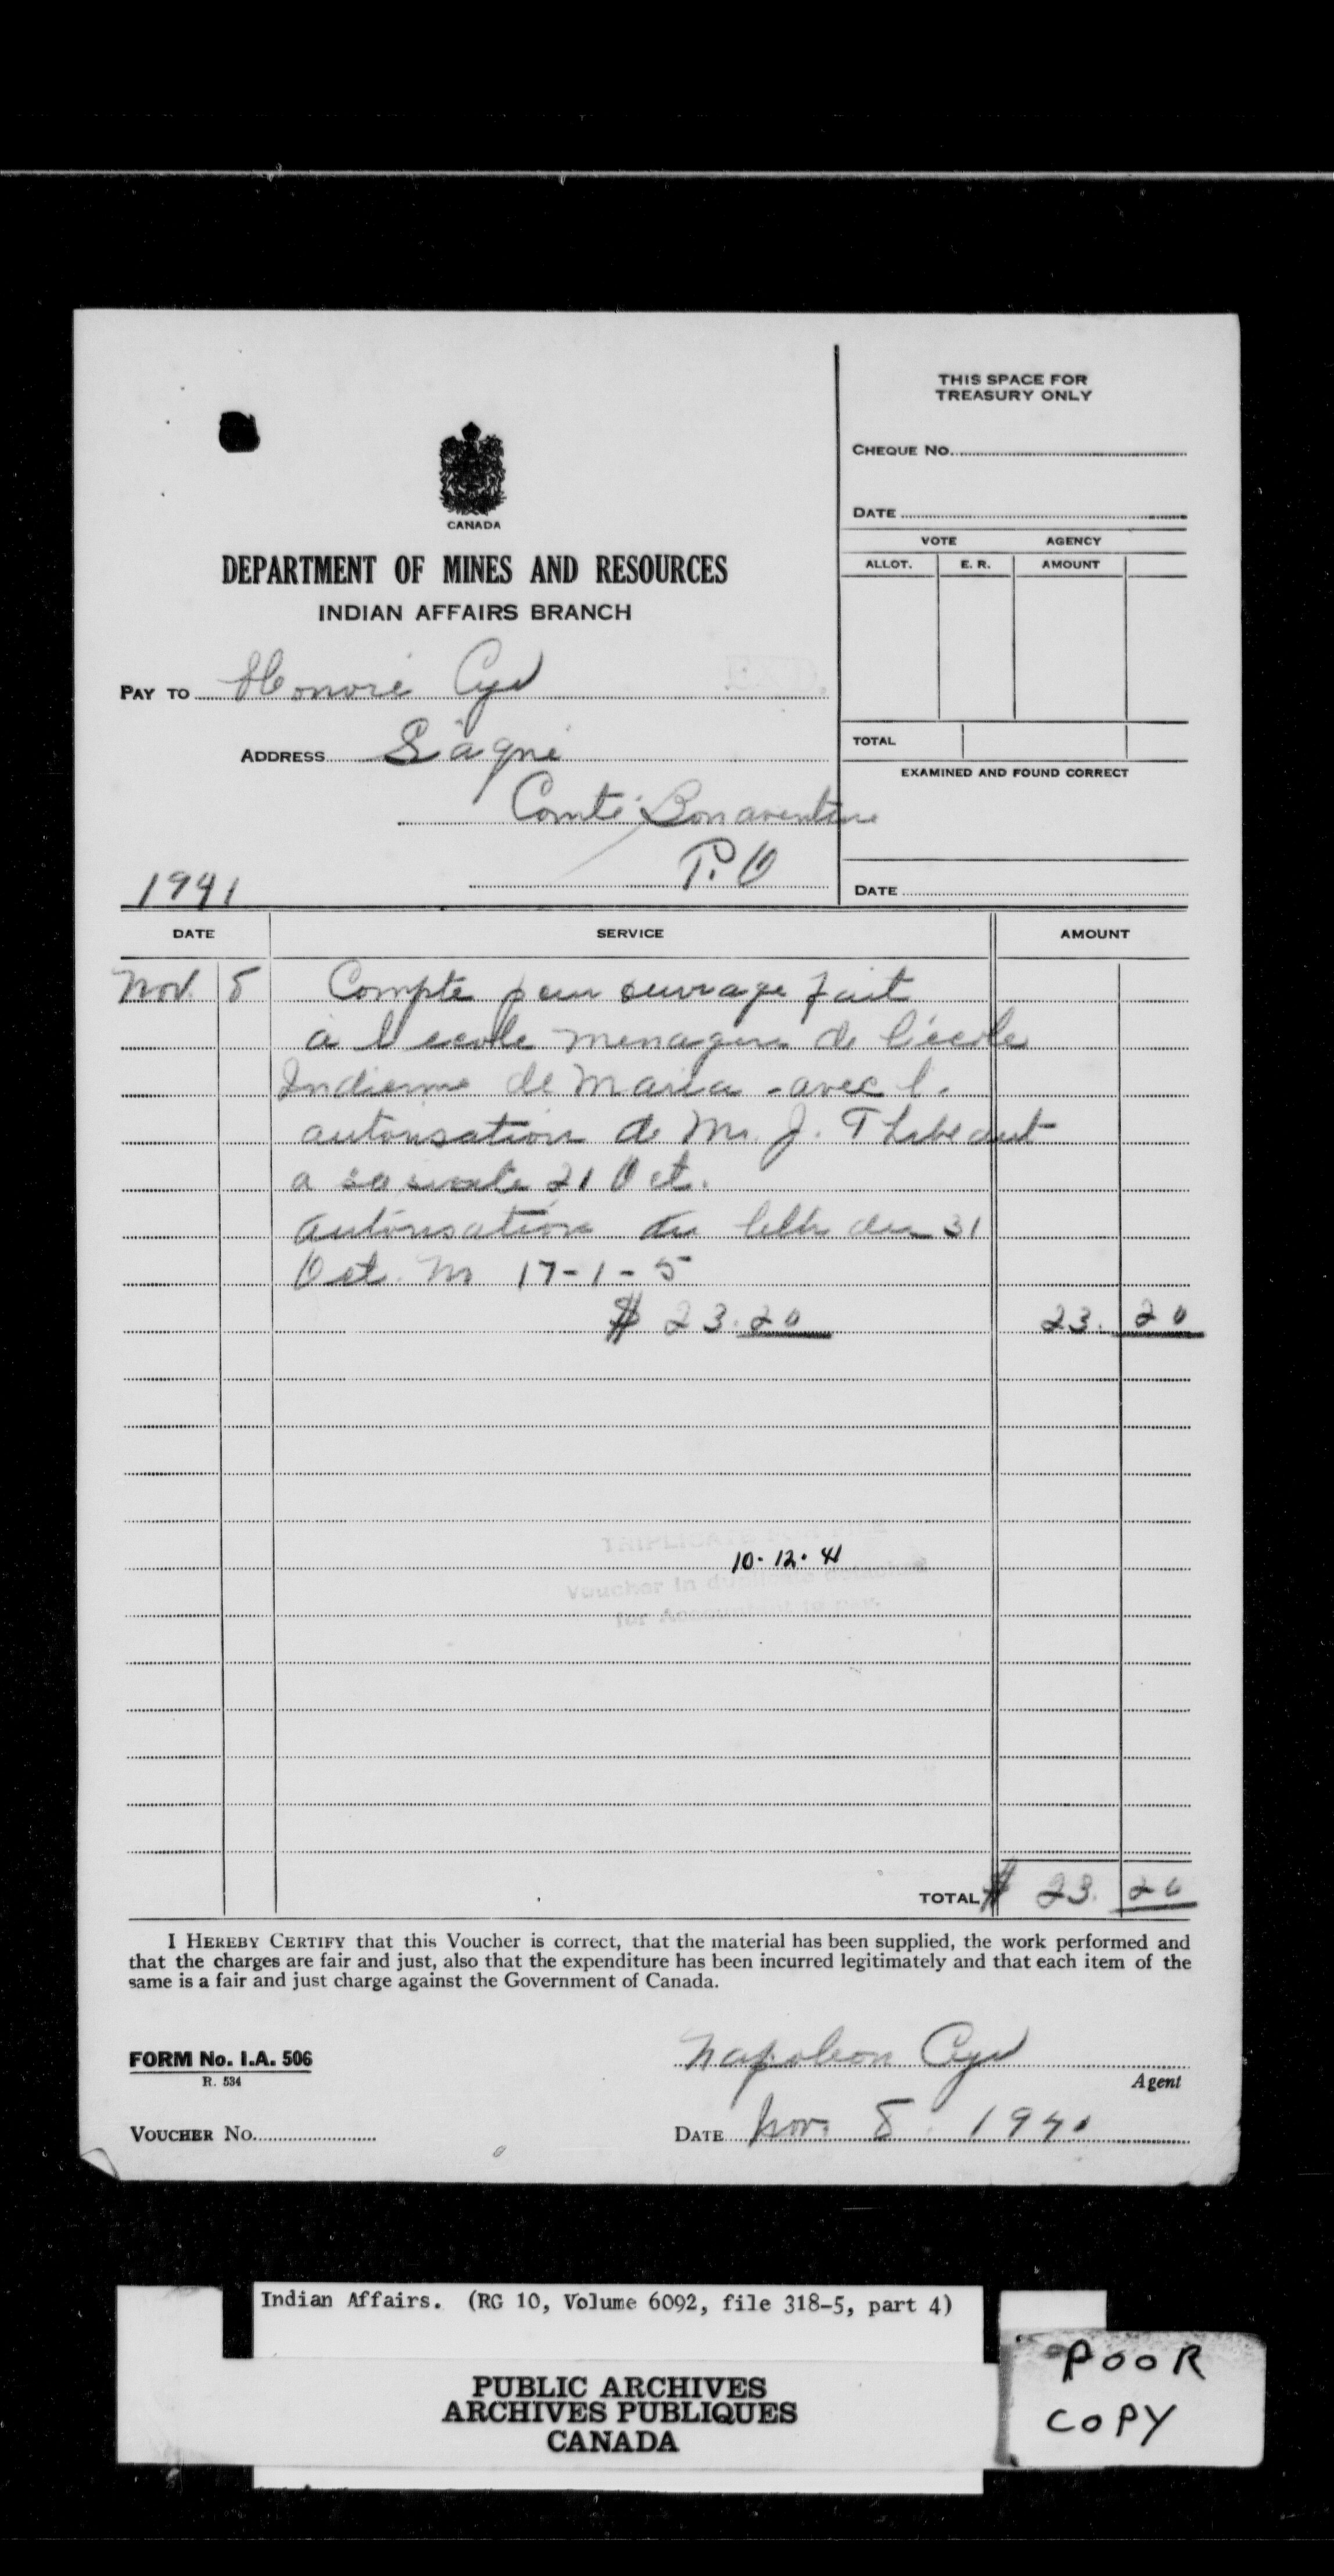 THIS SPACE FOR
TREASURY ONLY
CHEQUE No.
DATE
VOTE AGENCY
ALLOT. E. R. AMOUNT
TOTAL
EXAMINED AND FOUND CORRECT
DATE
CANADA
DEPARTMENT OF MINES AND RESOURCES
INDIAN AFFAIRS BRANCH
PAY TO Honoré Cyr
ADDRESS
Comté Bonaventure
P.Q
1941
DATE SERVICE AMOUNT
Nov. 8 Compte pour ouvrage fait
à l'ecole menagere de l'école
Indienne de Maria - avec l.
autorisation de Mr. J. Thibeault
a sa 21 Oct.
Autorisation du lettre du 31
Oct. No 17-1-5
$ 23.20 23. 20
TRIPLICATE FOR FILE
10.12.41
Voucher in duplicate detached
for Accountant to pay.
TOTAL $ 23. 20
I HEREBY CERTIFY that this Voucher is correct, that the material has been supplied, the work performed and
that the charges are fair and just, also that the expenditure has been incurred legitimately and that each item of the
same is a fair and just charge against the Government of Canada.
FORM No. I.A. 506
R. 534
Napoleon Cyr
Agent
VOUCHER No.
DATE Nov. 8. 1941
Indian Affairs. (RG 10, Volume 6092, file 318-5, part 4)
PUBLIC ARCHIVES
ARCHIVES PUBLIQUES
CANADA
POOR
COPY